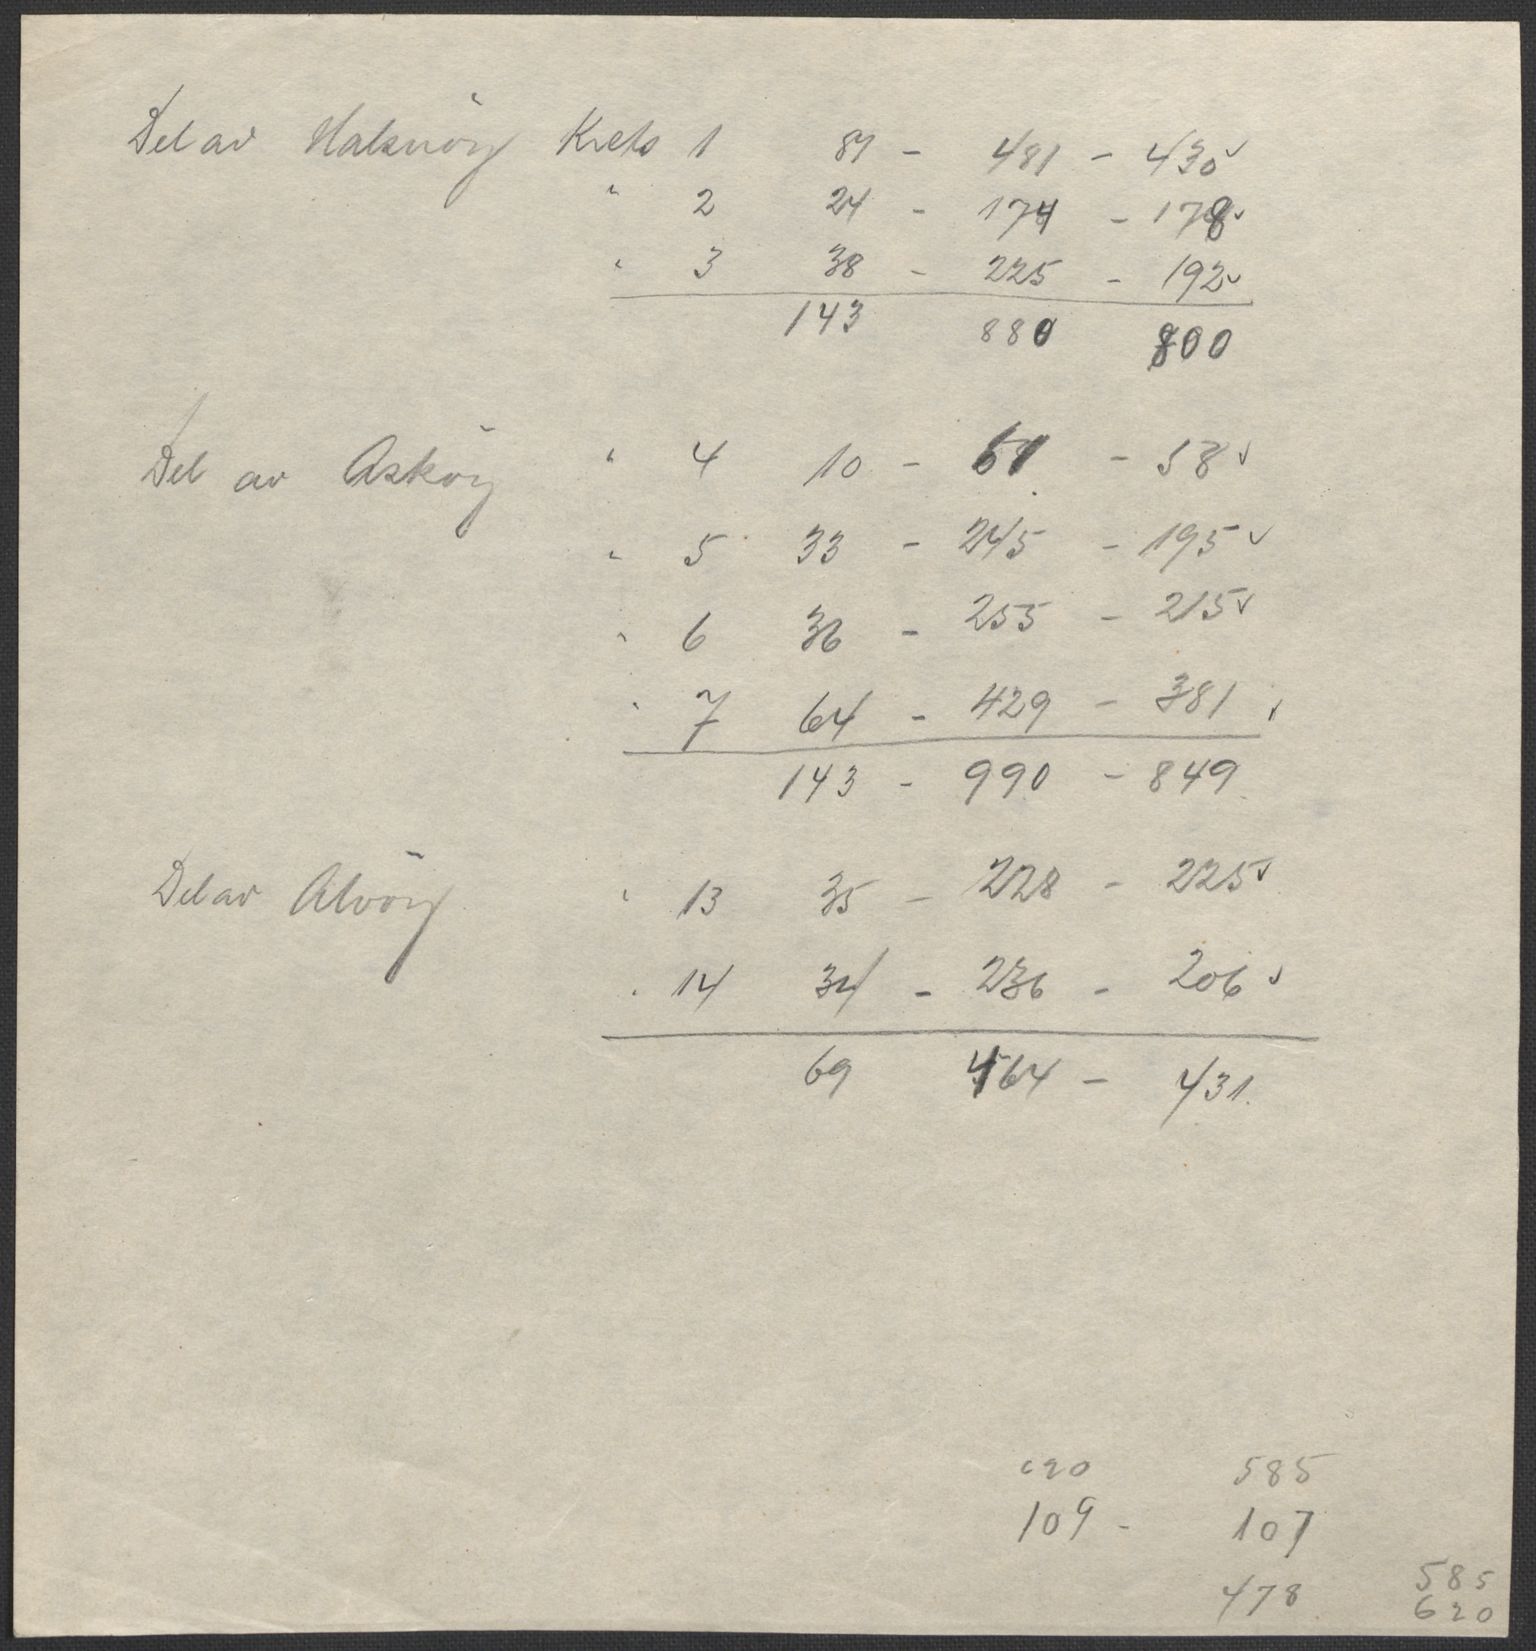 Del av Halsnöy Krets 1 81 - 481 - 430 ✓
" 2 24 - 174 - 178 ✓
" 3 38 - 225 - 192 ✓
143 880 800
Del av Askøy " 4 10 - 61 - 58 ✓
" 5 33 - 245 - 195 ✓
" 6 36 - 255 - 215 ✓
" 7 64 - 429 - 381 ✓
143 - 990 - 849
Del av Alvöy " 13 35 - 228 - 225 ✓
" 14 34 - 236 - 206 ✓
69 464 - 431.
620 585
109 - 107
478
585
620